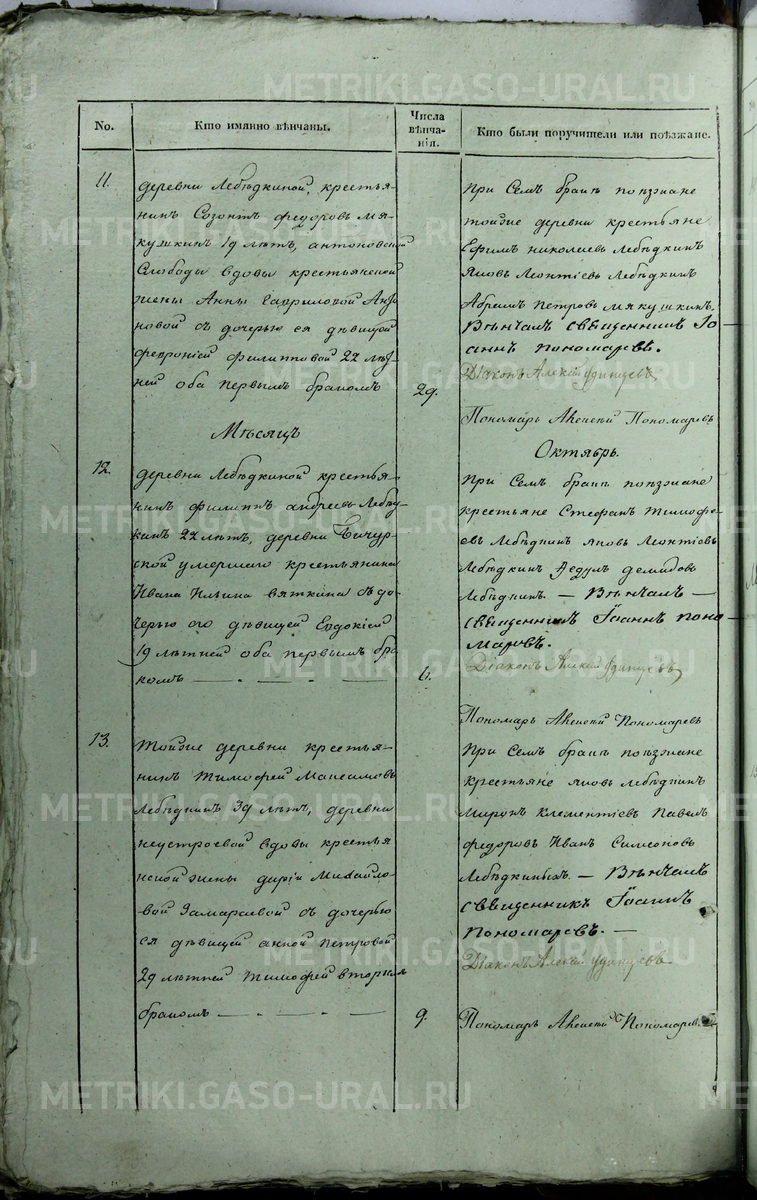 No.
Кто имянно вѣнчаны.
Числа
вѣнча-
нія.
Кто были поручители или поѣзжане.
11.
деревни Лебѣдкиной, крестья-
нинъ Созонтъ Федоровъ Мя-
кушкинъ 19 лѣтъ, антоновской
Слободы вдовы крестьянской
жены Анны Гавриловой
новой съ дочерью ея дѣвицей
Февроніей Филипповой 22 лѣт-
ней оба первымъ бракомъ
29.
При Семъ бракѣ поѣзжане
тойже деревни крестьяне
Ефимъ Николаевъ Лебѣдкинъ
Яковъ Леонтіевъ Лебѣдкинъ
Абрамъ Петровъ Мякушкинъ.
Вѣнчалъ священникъ Іо-
аннъ Пономаревъ.
Діаконъ Алексій Удинцевъ
Пономарь Пономаревъ
Мѣсяцъ
Октябрь.
12.
деревни Лебѣдкиной крестья-
нинъ Филиппъ андреевъ Лебѣд-
кинъ 22 лѣтъ, деревни Бичур-
ской умершаго крестьянина
Ивана Ильина Вяткина съ до-
черью его дѣвицей Евдокіей
19 лѣтней оба первымъ бра-
комъ
6.
При Семъ бракѣ поѣзжане
крестьяне Стефанъ Тимофе-
евъ Лебѣдкинъ яковъ Леонтіевъ
Лебѣдкинъ Федулъ демидовъ
Лебѣдкинъ. — Вѣнчалъ —
священникъ Іоаннъ Поно-
маревъ.
Діаконъ Алексій Удинцевъ
Пономарь Пономаревъ
13.
Тойже деревни крестья-
нинъ Тимофей Максимовъ
Лебѣдкинъ 39 лѣтъ, деревни
неустроевой вдовы крестья
нской жены Дарьи Михайло-
вой Замараевой съ дочерью
ея дѣвицей анной Петровой
29 лѣтней Тимофей вторымъ
бракомъ
9.
При Семъ бракѣ поѣзжане
крестьяне яковъ Лебѣдкинъ
Миронъ Клементіевъ Павелъ
Федоровъ Иванъ Симеоновъ
Лебѣдкины. — Вѣнчалъ
священникъ Іоаннъ
Пономаревъ. —
Діаконъ Алексій Удинцевъ
Пономарь Пономаревъ
METRIKI.GASO-URAL.RU